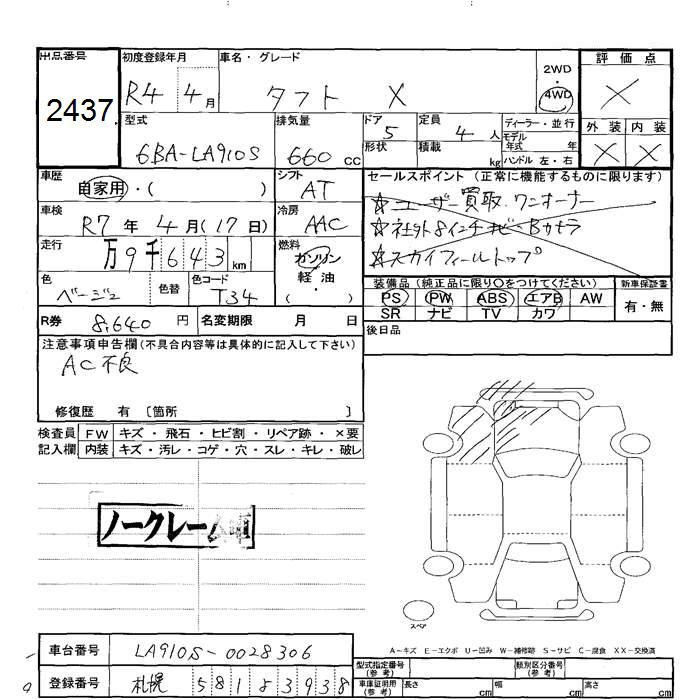 出品番号
2437
初度登録年月
R4 4月
車名・グレード
タフト X
2WD
・
4WD
評価点
X
型式
6BA-LA910S
排気量
660 cc
ドア
5
形状
定員
4 人
積載
kg
ディーラー・並行
モデル
年式 年
ハンドル 左・右
外装 内装
X X
車歴
自家用・( )
シフト
AT
車検
R7 年 4 月(17 日)
冷房
AAC
走行
万 9 千 6 4 3 km
燃料
ガソリン
軽・油
( )
色
ベージュ
色替
色コード
T34
セールスポイント (正常に機能するものに限ります)
☆ユーザー買取 ワンオーナー
☆社外8インチナビ Bカメラ
☆スカイフィールトップ
装備品 (純正品に限り○をつけてください)
PS PW ABS エアB AW
SR ナビ TV カワ
新車保証書
有・無
R券 8,640 円
名変期限 月 日
後日品
注意事項申告欄(不具合内容等は具体的に記入して下さい)
AC不良
修復歴 有 〔箇所 〕
検査員 FW キズ・飛石・ヒビ割・リペア跡・×要
記入欄 内装 キズ・汚レ・コゲ・穴・スレ・キレ・破レ
ノークレーム車
スペア
A-キズ E-エクボ U-凹み W-補修跡 S-サビ C-腐食 XX-交換済
車台番号 LA910S-0028306
登録番号 札幌 581
型式指定番号
(参考)
類別区分番号
(参考)
車庫証明用
(参考)
長さ cm 幅 cm 高さ cm